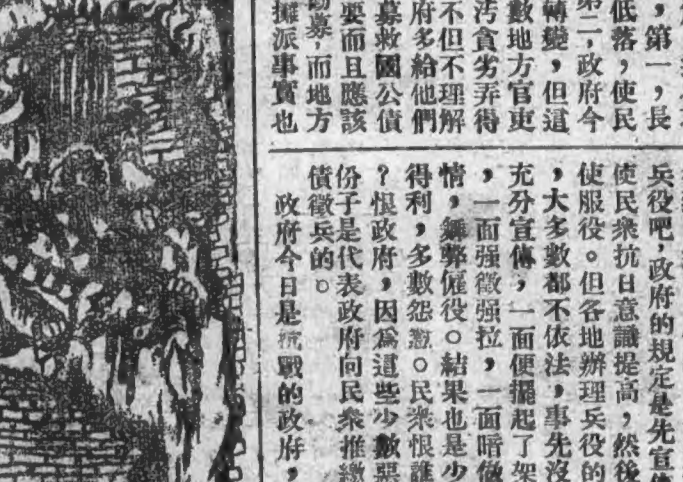 ，第一，長
低落，使民
第二，政府今
轉變，但這
數地方官吏
污貪劣弄得
不但不理解
府多給他們
募救國公債
要而且應該
勸募，而地方
攤派事實也
兵役吧，政府的規定是先宣傳
使民衆抗日意識提高，然後
使服役。但各地辦理兵役的
，大多數都不依法，事先沒
充分宣傳，一面便擺起了架
，一面强徵强拉，一面暗做
情，舞弊僱役。結果也是少
得利，多數怨懟。民衆恨誰
？恨政府，因爲這些少數惡
份子是代表政府向民衆推繳
債徵兵的。
政府今日是抗戰的政府，